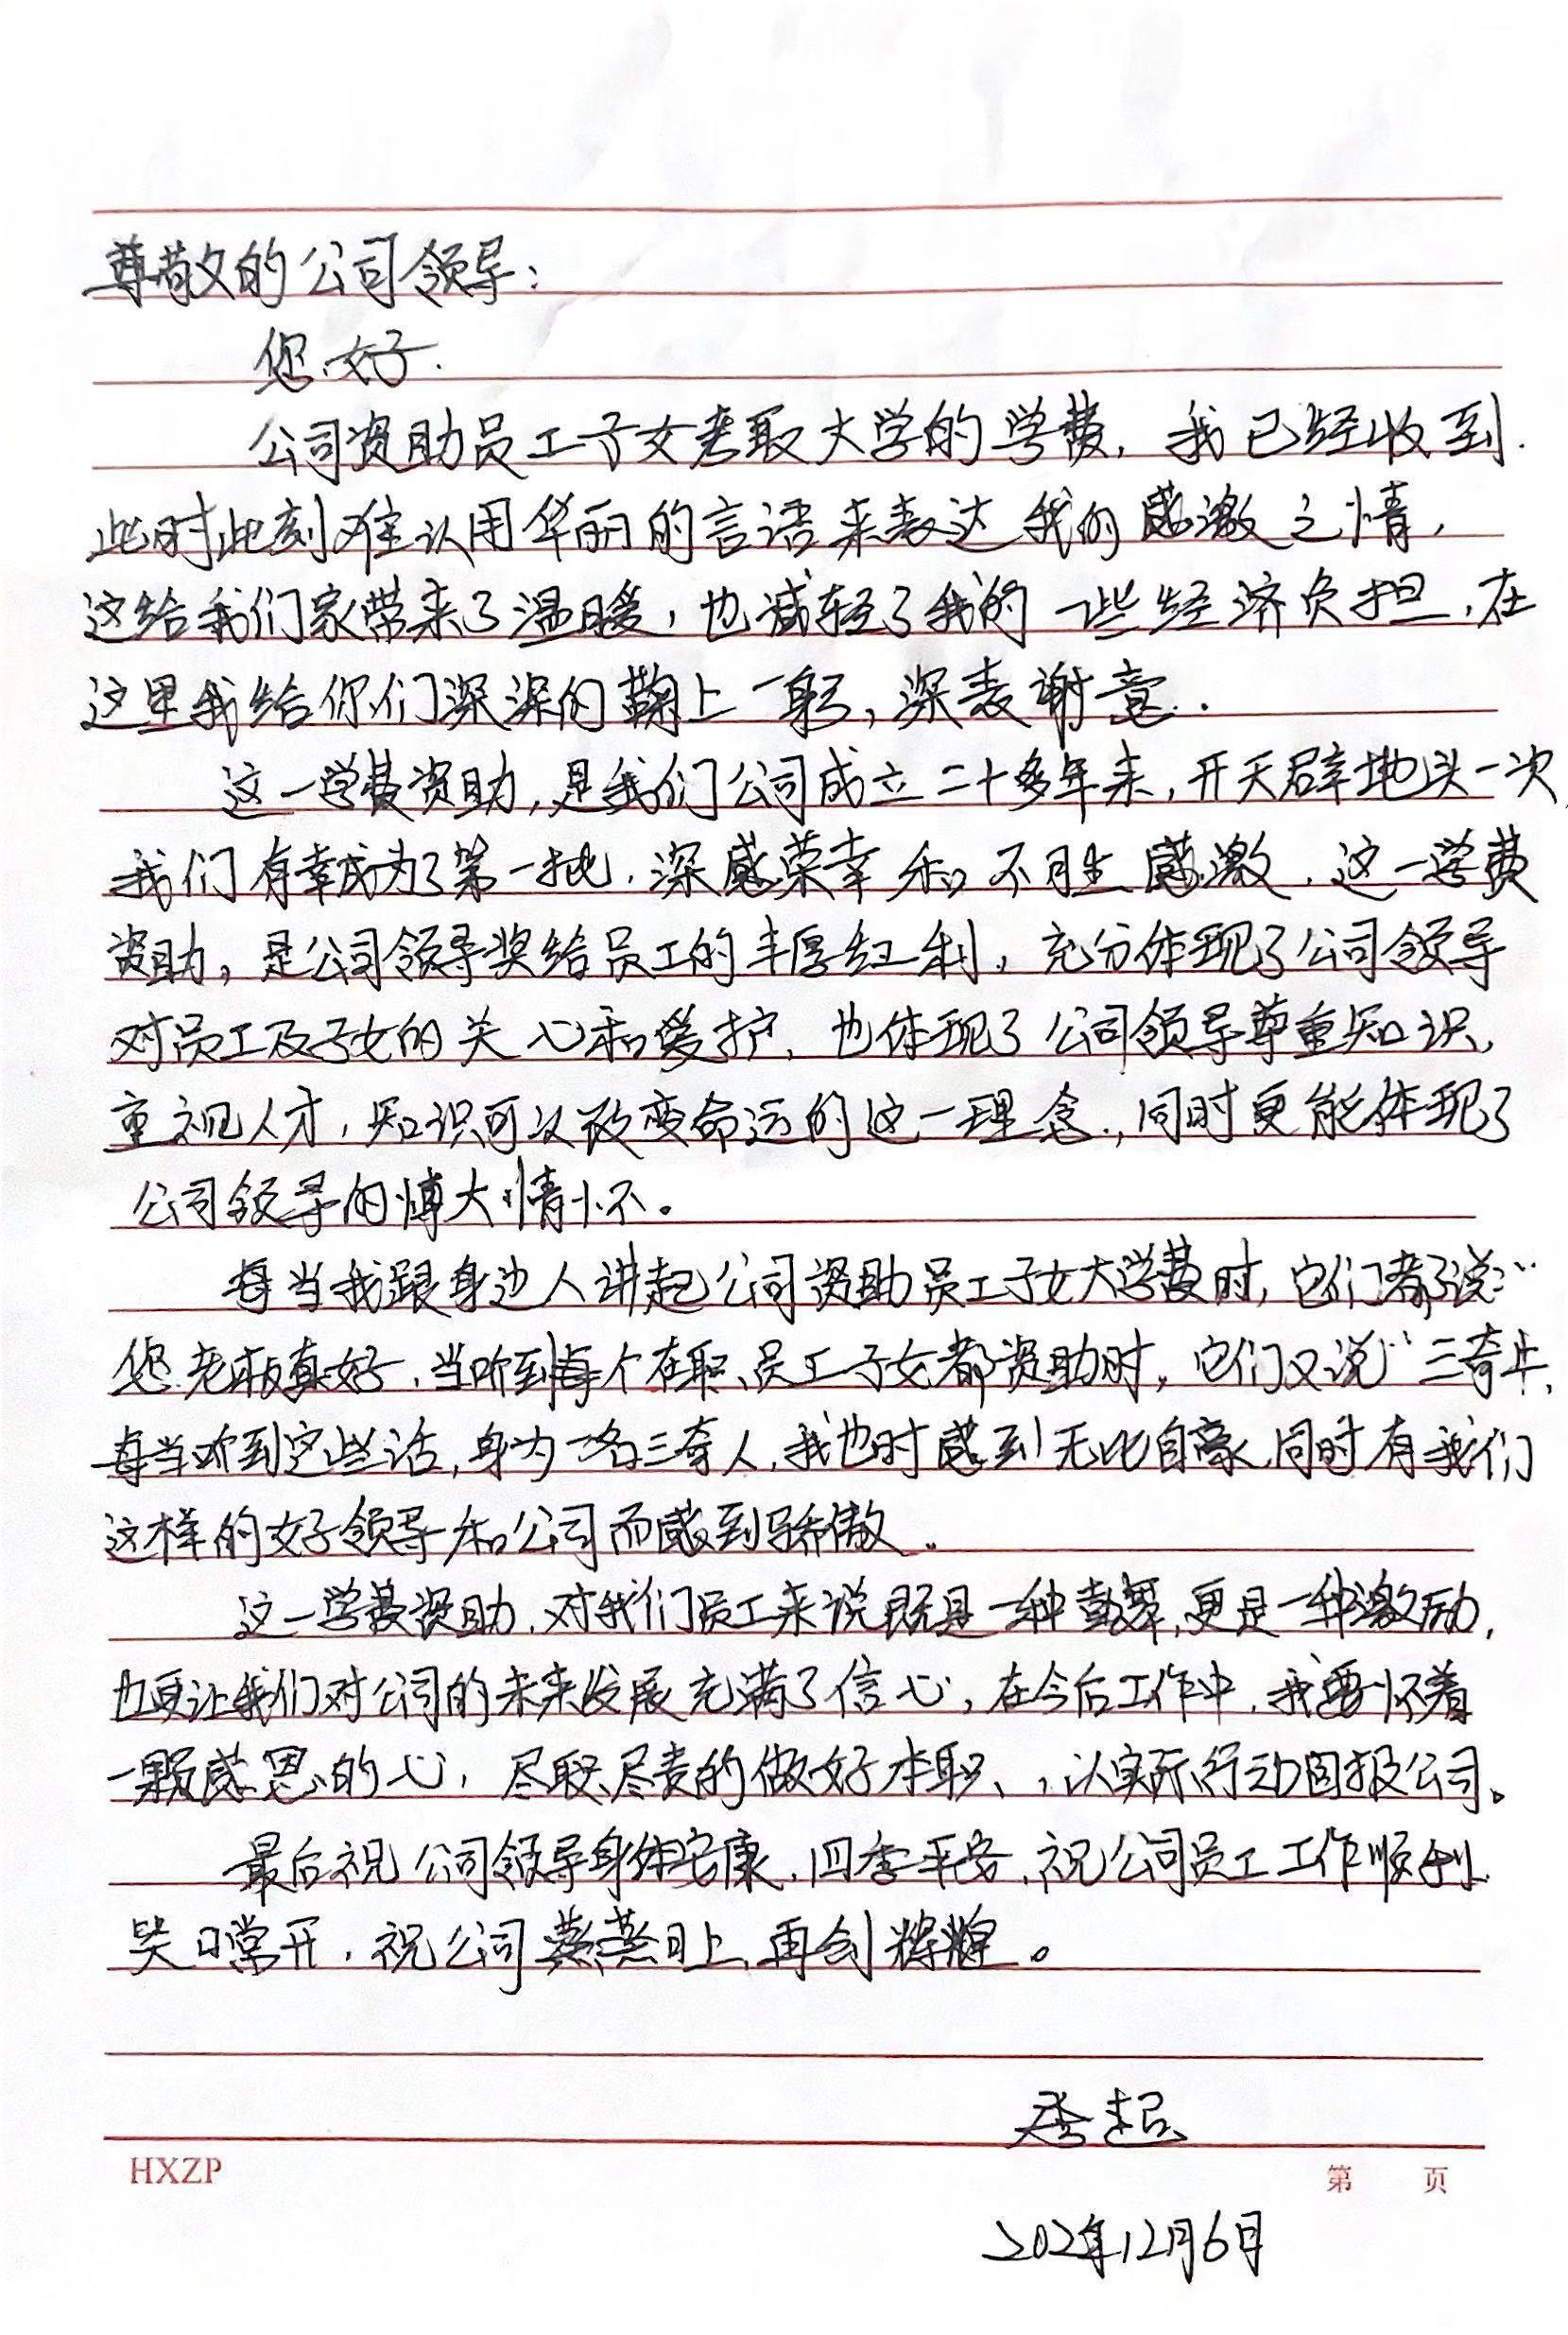 尊敬的公司领导：
您好.
公司资助员工子女考取大学的学费，我已经收到.
此时此刻难以用华丽的言语来表达我的感激之情，
这给我们家带来了温暖，也减轻了我的一些经济负担，在
这里我给你们深深的鞠上一躬，深表谢意.
这一学费资助，是我们公司成立二十多年来，开天辟地头一次，
我们有幸成为了第一批，深感荣幸和不胜感激，这一学费
资助，是公司领导奖给员工的丰厚红利，充分体现了公司领导
对员工及子女的关心和爱护，也体现了公司领导尊重知识，
重视人才，知识可以改变命运的这一理念，同时更能体现了
公司领导的博大情怀。
每当我跟身边人讲起公司资助员工子女大学费时，它们都说：“
您老板真好，当听到每个在职员工子女都资助时，它们又说“三奇牛，
每当听到这些话，身为一名三奇人，我也时感到无比自豪，同时有我们
这样的好领导和公司而感到骄傲。
这一学费资助，对我们员工来说既是一种鼓舞，更是一种激励，
也更让我们对公司的未来发展充满了信心，在今后工作中，我要怀着
一颗感恩的心，尽职尽责的做好本职，以实际行动回报公司。
最后祝公司领导身体安康，四季平安，祝公司员工工作顺利
笑口常开，祝公司蒸蒸日上，再创辉煌。
HXZP
第 页
202年12月6日